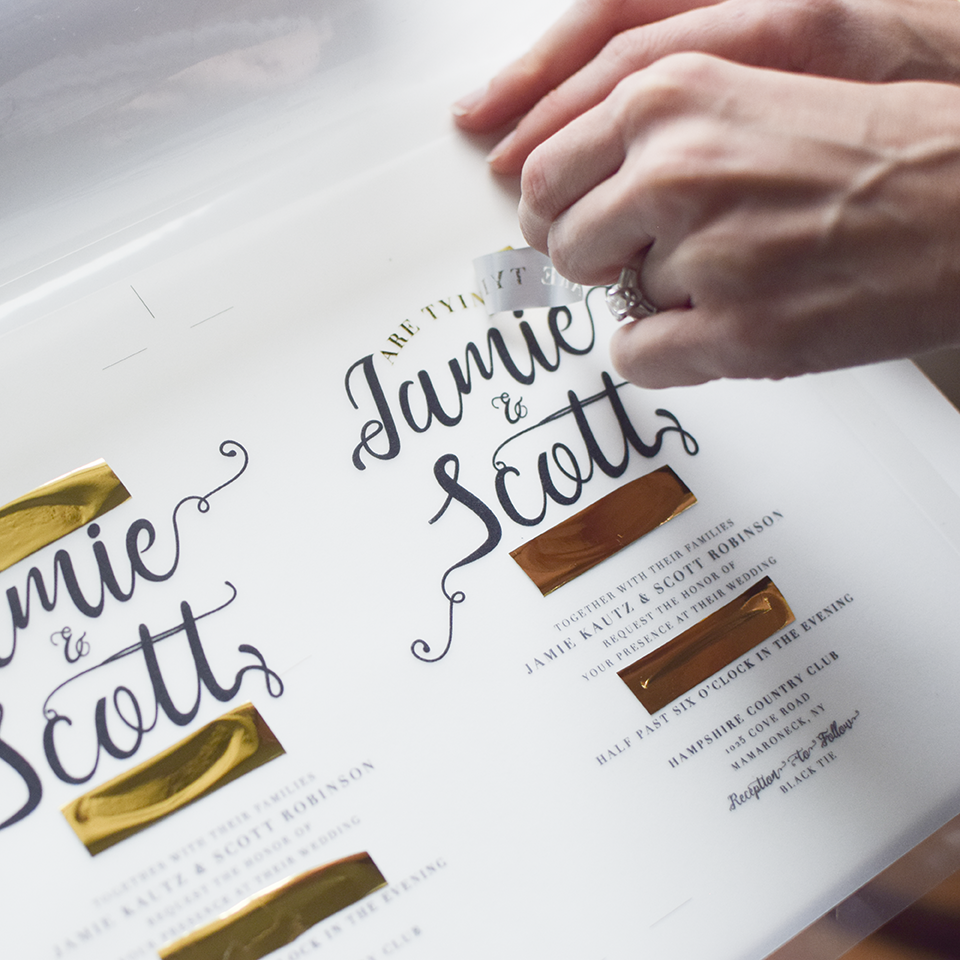 ARE TYIN
Jamie
&
Scott
TOGETHER WITH THEIR FAMILIES
JAMIE KAUTZ & SCOTT ROBINSON
REQUEST THE HONOR OF
YOUR PRESENCE AT THEIR WEDDING
HALF PAST SIX O'CLOCK IN THE EVENING
HAMPSHIRE COUNTRY CLUB
1025 COVE ROAD
MAMARONECK, NY
Reception to Follow
BLACK TIE
amie
&
Scott
TOGETHER WITH THEIR FAMILIES
JAMIE KAUTZ & SCOTT ROBINSON
REQUEST THE HONOR OF
YOUR PRESENCE AT THEIR WEDDING
CLOCK IN THE EVENING
CLUB